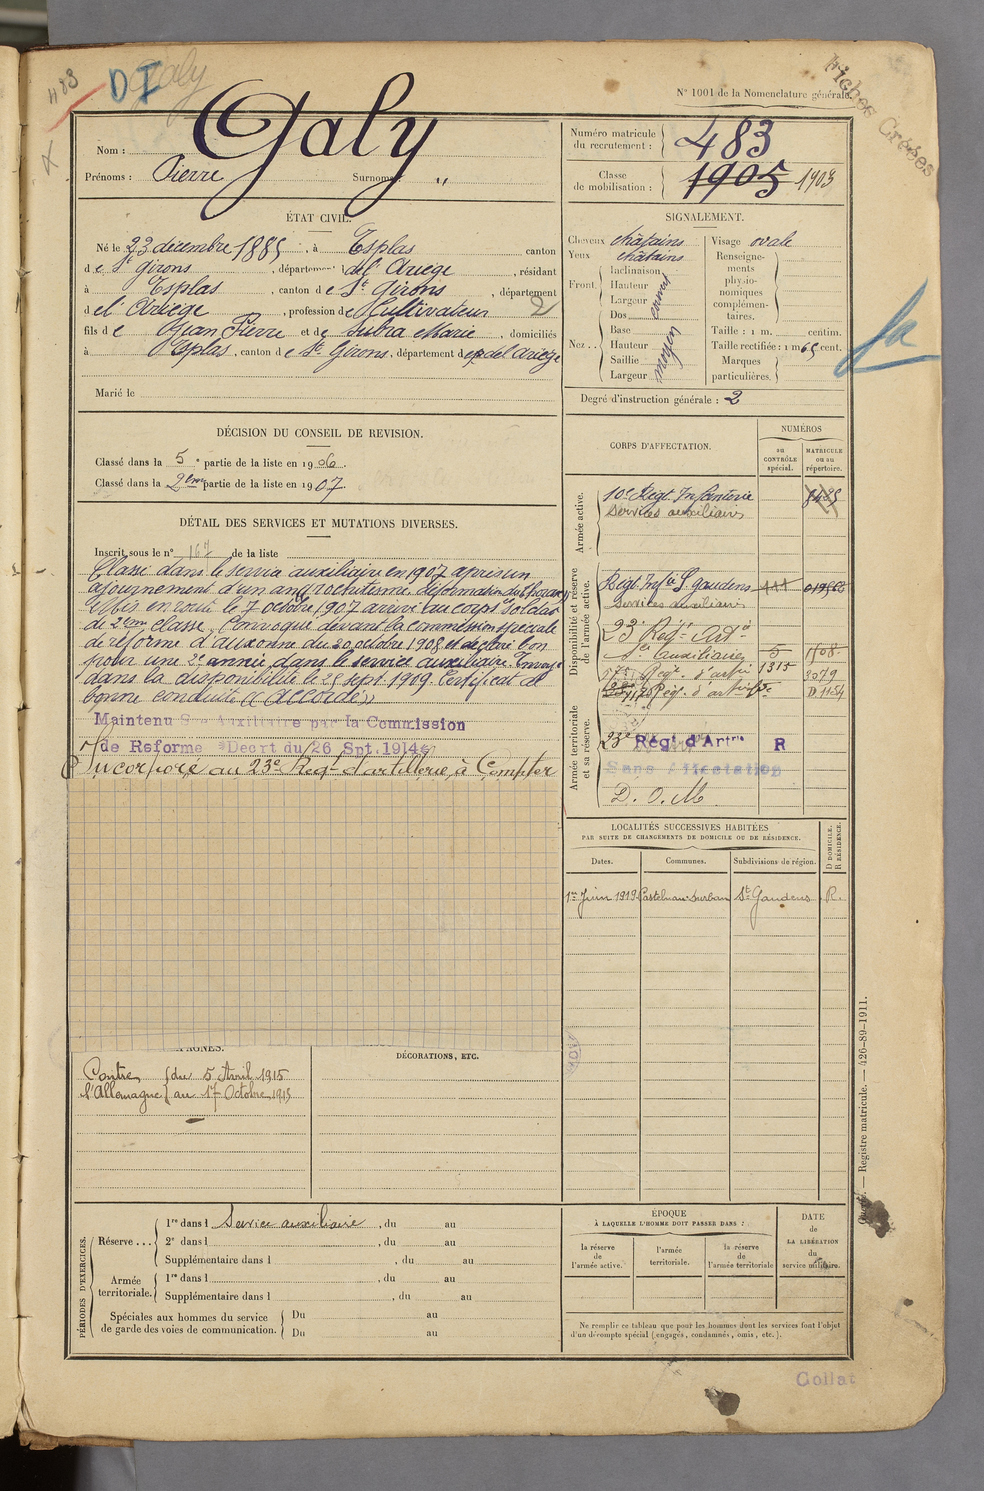 483
DI
Galy
N° 1001 de la Nomenclature générale.
Fiches Créées
Nom : Galy
Prénoms : Pierre Surnoms : "
Numéro matricule du recrutement : 483
Classe de mobilisation : 1905 1903
ÉTAT CIVIL.
Né le 23 décembre 1885, à Esplas canton
de St Girons, département de l'Ariège, résidant
à Esplas, canton de St Girons, département
de l'Ariège, profession de Cultivateur
2
fils de Jean Pierre et de Subra Marie, domiciliés
à Esplas, canton de St Girons, département de l'Ariège
Marié le
SIGNALEMENT.
Cheveux châtains
Yeux châtains
Front.
Inclinaison
Hauteur
Largeur
Nez..
Dos
Base
Hauteur
Saillie
Largeur
moyen
Visage ovale
Renseignements physionomiques complémentaires.
Taille : 1 m. centim.
Taille rectifiée : 1 m 65 cent.
Marques particulières.
Degré d'instruction générale : 2
DÉCISION DU CONSEIL DE REVISION.
Classé dans la 5e partie de la liste en 1906.
Classé dans la 2eme partie de la liste en 1907.
DÉTAIL DES SERVICES ET MUTATIONS DIVERSES.
Inscrit sous le n° 167 de la liste
Classé dans le service auxiliaire en 1907 après un
ajournement d'un an
Mis en route le 7 octobre 1907 arrivé au corps soldat
de 2eme classe. Convoqué devant la commission spéciale
de réforme d'Auxonne du 20 octobre 1908 et déclaré bon
pour une 2e année dans le service auxiliaire. Envoyé
dans la disponibilité le 25 sept. 1909. Certificat de
bonne conduite "Accordé"
Maintenu Sce Auxiliaire par la Commission
de Réforme Décrt du 26 Spt. 1914
Incorporé au 23e Régt d'artillerie à Compter
CORPS D'AFFECTATION.
NUMÉROS
au CONTRÔLE spécial.
MATRICULE ou au répertoire.
Armée active.
10e Régt Infanterie
Services auxiliaires
Disponibilité et réserve de l'armée active.
Régt Infie St gaudens
Services auxiliaires
23e Régt Artie
Sces auxiliaires 5 1508
Régt d'artie 1315 3079
Régt d'artie D 1154
Armée territoriale et sa réserve.
23e Régt d'Artrie R
Sans Affectation
D. O. M
LOCALITÉS SUCCESSIVES HABITÉES
PAR SUITE DE CHANGEMENTS DE DOMICILE OU DE RÉSIDENCE.
D DOMICILE. R RÉSIDENCE.
Dates. Communes. Subdivisions de région.
1er Juin 1919 Castelnau-Durban St Gaudens R.
DÉCORATIONS, ETC.
Contre l'Allemagne
du 5 Avril 1915
au 17 Octobre 1915
PÉRIODES D'EXERCICES.
Réserve...
1re dans l Service auxiliaire, du au
2e dans l , du au
Supplémentaire dans l , du au
Armée territoriale.
1re dans l , du au
Supplémentaire dans l , du au
Spéciales aux hommes du service de garde des voies de communication.
Du au
Du au
ÉPOQUE
À LAQUELLE L'HOMME DOIT PASSER DANS :
la réserve de l'armée active.
l'armée territoriale.
la réserve de l'armée territoriale
DATE DE LA LIBÉRATION du service militaire.
Ne remplir ce tableau que pour les hommes dont les services font l'objet
d'un décompte spécial (engagés, condamnés, omis, etc.).
— Registre matricule. — 426-89-1911.
Collat